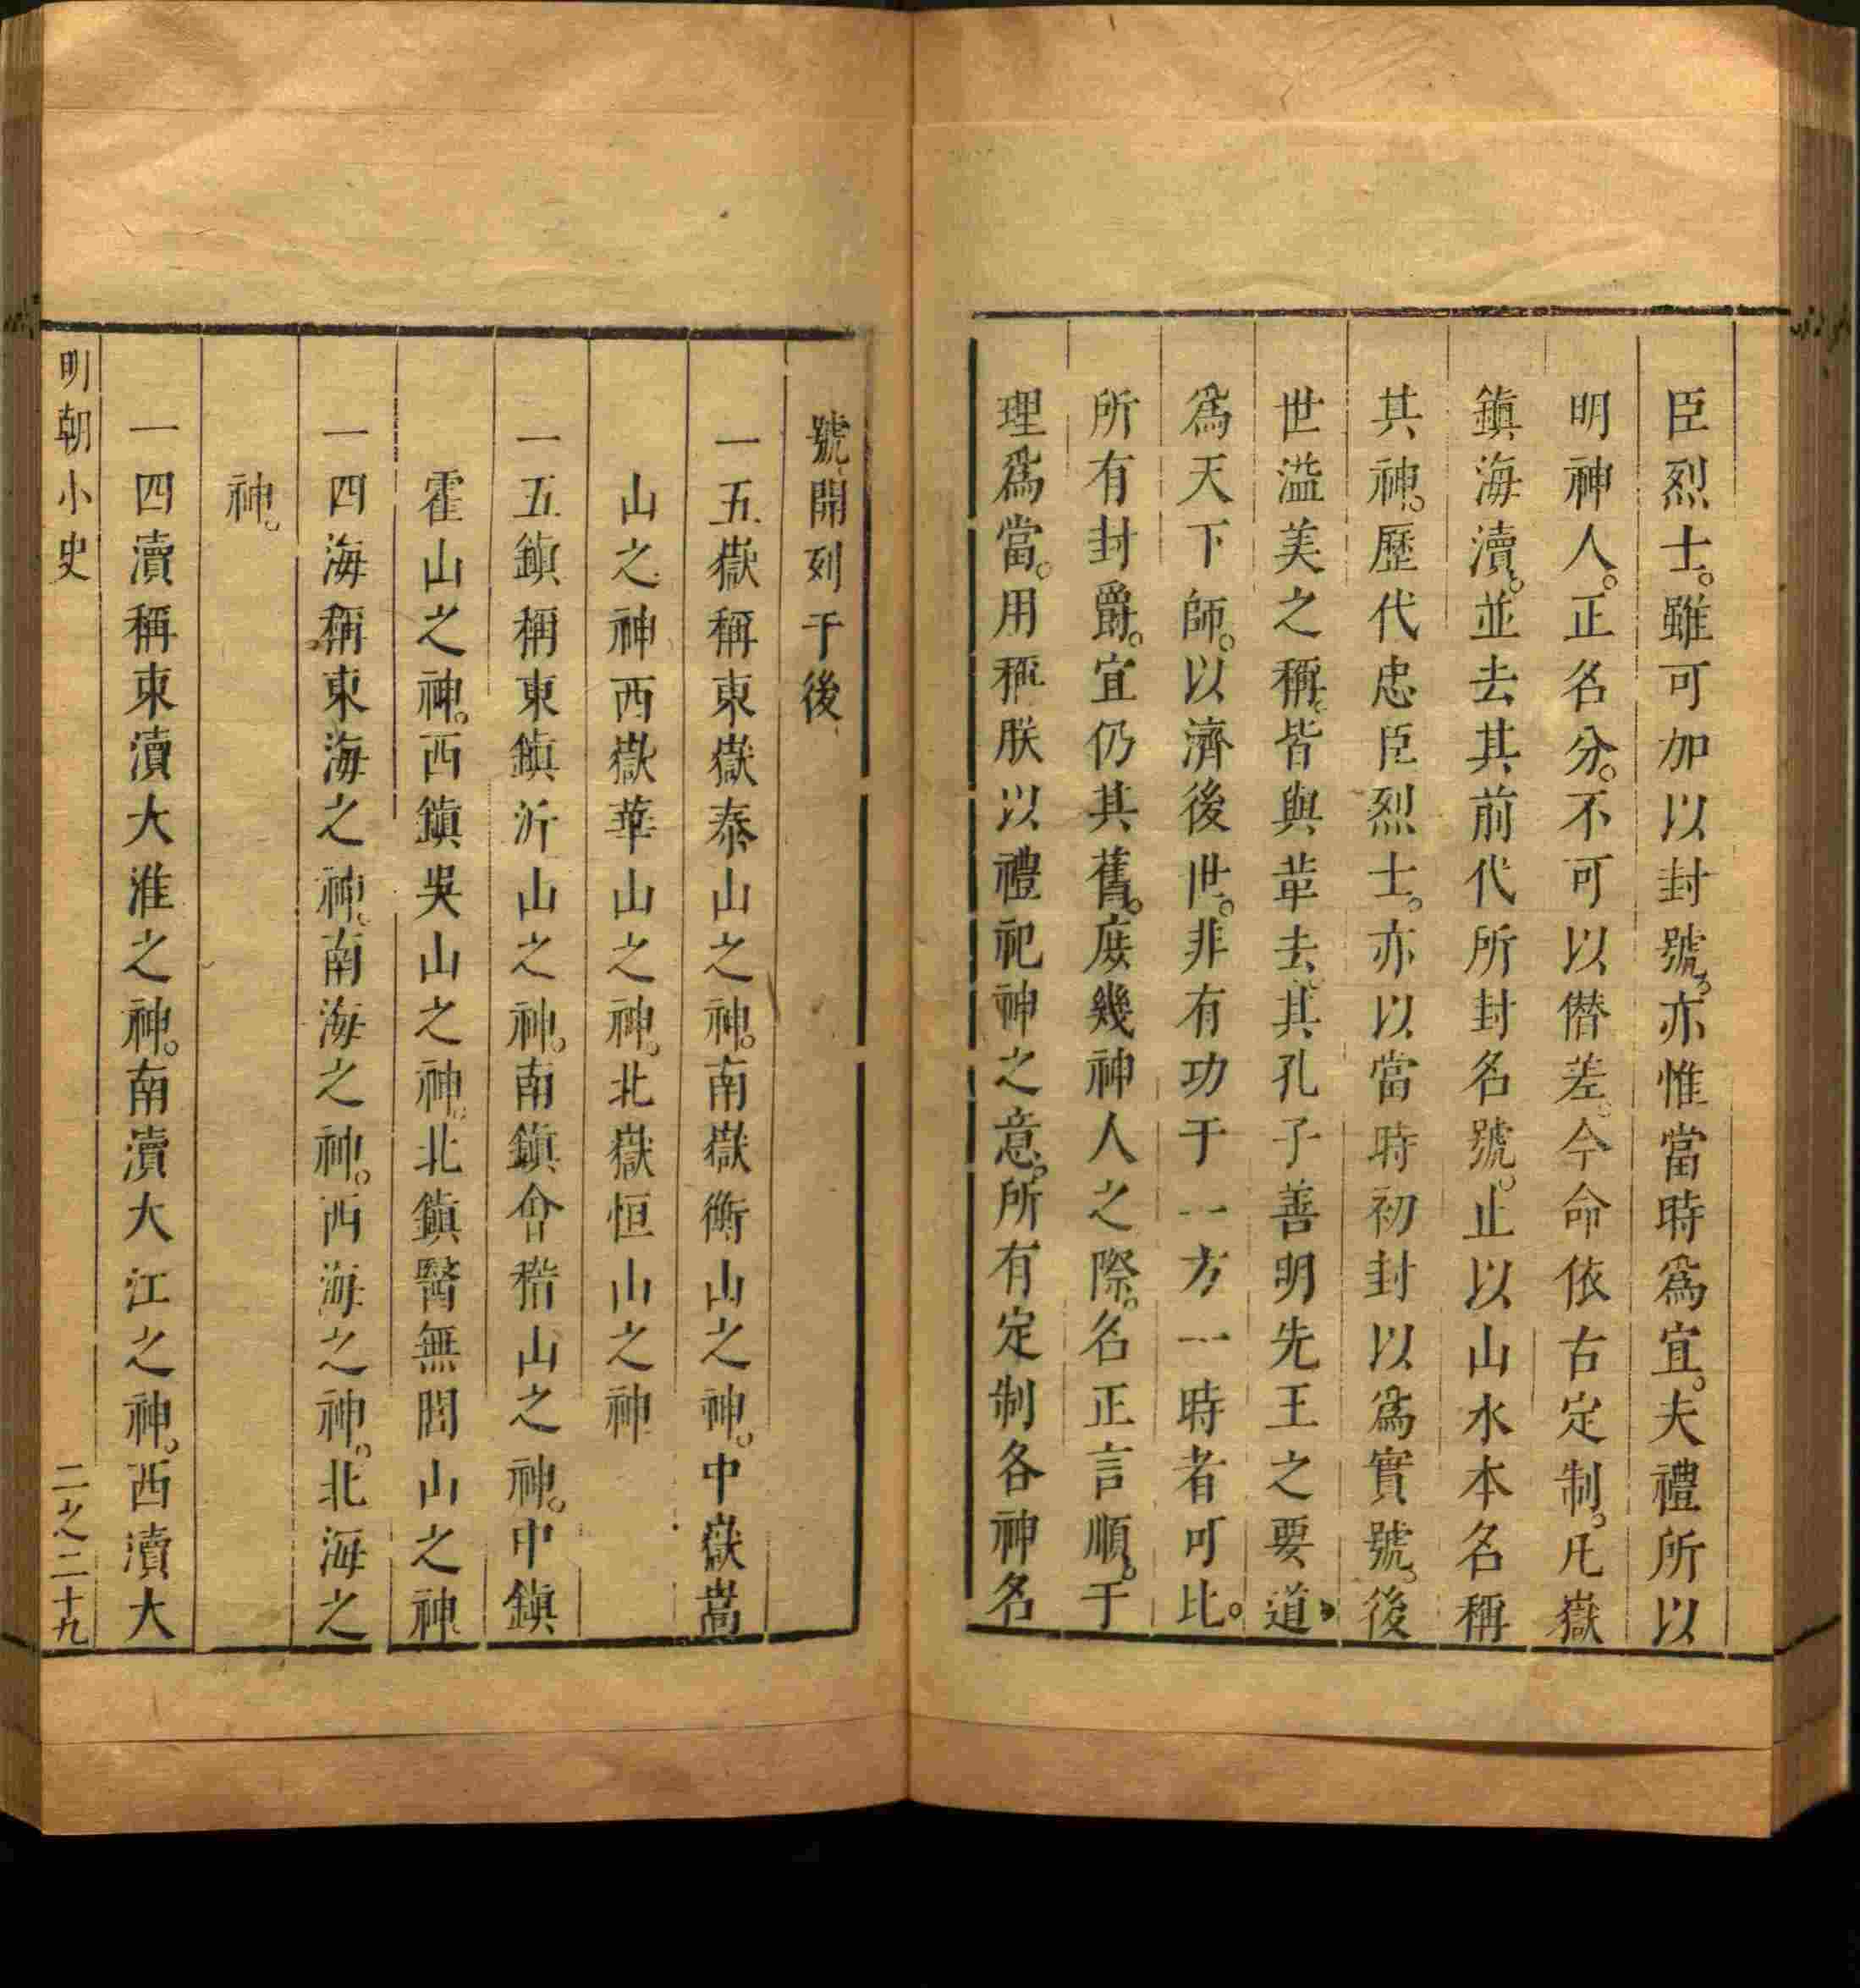 臣烈士。雖可加以封號。亦惟當時爲宜。夫禮所以
明神人。正名分。不可以僭差。今命依古定制。凡嶽
鎮海瀆。並去其前代所封名號。止以山水本名稱
其神。歷代忠臣烈士。亦以當時初封以爲實號。後
世溢美之稱。皆與革去。其孔子善明先王之要道
爲天下師。以濟後世。非有功于一方一時者可比。
所有封爵。宜仍其舊。庶幾神人之際。名正言順。于
理爲當。用稱朕以禮祀神之意。所有定制各神名
號開列于後
一五嶽稱東嶽泰山之神。南嶽衡山之神。中嶽嵩
山之神西嶽華山之神。北嶽恒山之神
一五鎮稱東鎮沂山之神。南鎮會稽山之神。中鎮
霍山之神。西鎮吳山之神。北鎮醫無閭山之神
一四海稱東海之神。南海之神。西海之神。北海之
神。
一四瀆稱東瀆大淮之神。南瀆大江之神。西瀆大
明朝小史
二之二十九